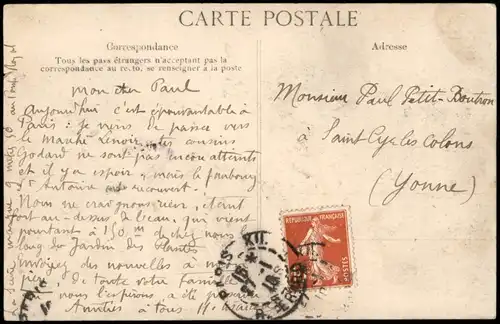 CARTE POSTALE
Correspondance
Tous les pays étrangers n'acceptant pas la
correspondance au recto, se renseigner à la poste
Adresse
Mon cher Paul
Aujourd'hui c'est épouvantable à
Paris : je viens de passer vers
le Marché Lenoir, les cousins
Godard ne sont pas encore atteints
et il y a espoir, mais le faubourg
St Antoine est recouvert.
Nous ne craignons rien, étant
fort au-dessus de l'eau, qui vient
pourtant à 150 m de chez nous
long du Jardin des Plantes
Envoyez des nouvelles à notre
père, de toute votre famille
nous l'espérons, a été préservée
Amitiés à tous
Monsieur Paul Petit-Boutron
à Saint Cyr les Colons
(Yonne)
REPUBLIQUE FRANÇAISE
POSTES
PARIS XII